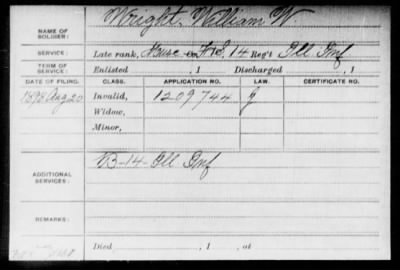 Wright, William W.
NAME OF SOLDIER:
SERVICE: Late rank, F&S, 14 Reg't Ill Inf
TERM OF SERVICE: Enlisted , 1 Discharged , 1
DATE OF FILING. CLASS. APPLICATION NO. LAW. CERTIFICATE NO.
1898 Aug 20 Invalid, 1209744 G
Widow,
Minor,
ADDITIONAL SERVICES: B-14-Ill Inf
REMARKS:
Died , 1 , at